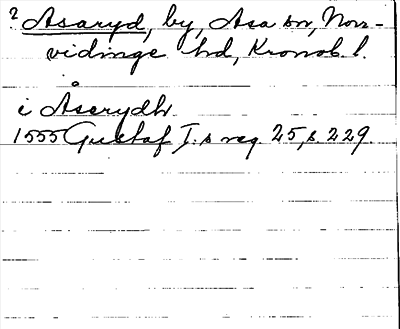 ? Asaryd, by, Asa sn, Norr-
vidinge hd, Kronob. l.
i Åserydh
1555 Gustaf I:s reg. 25, s. 229.